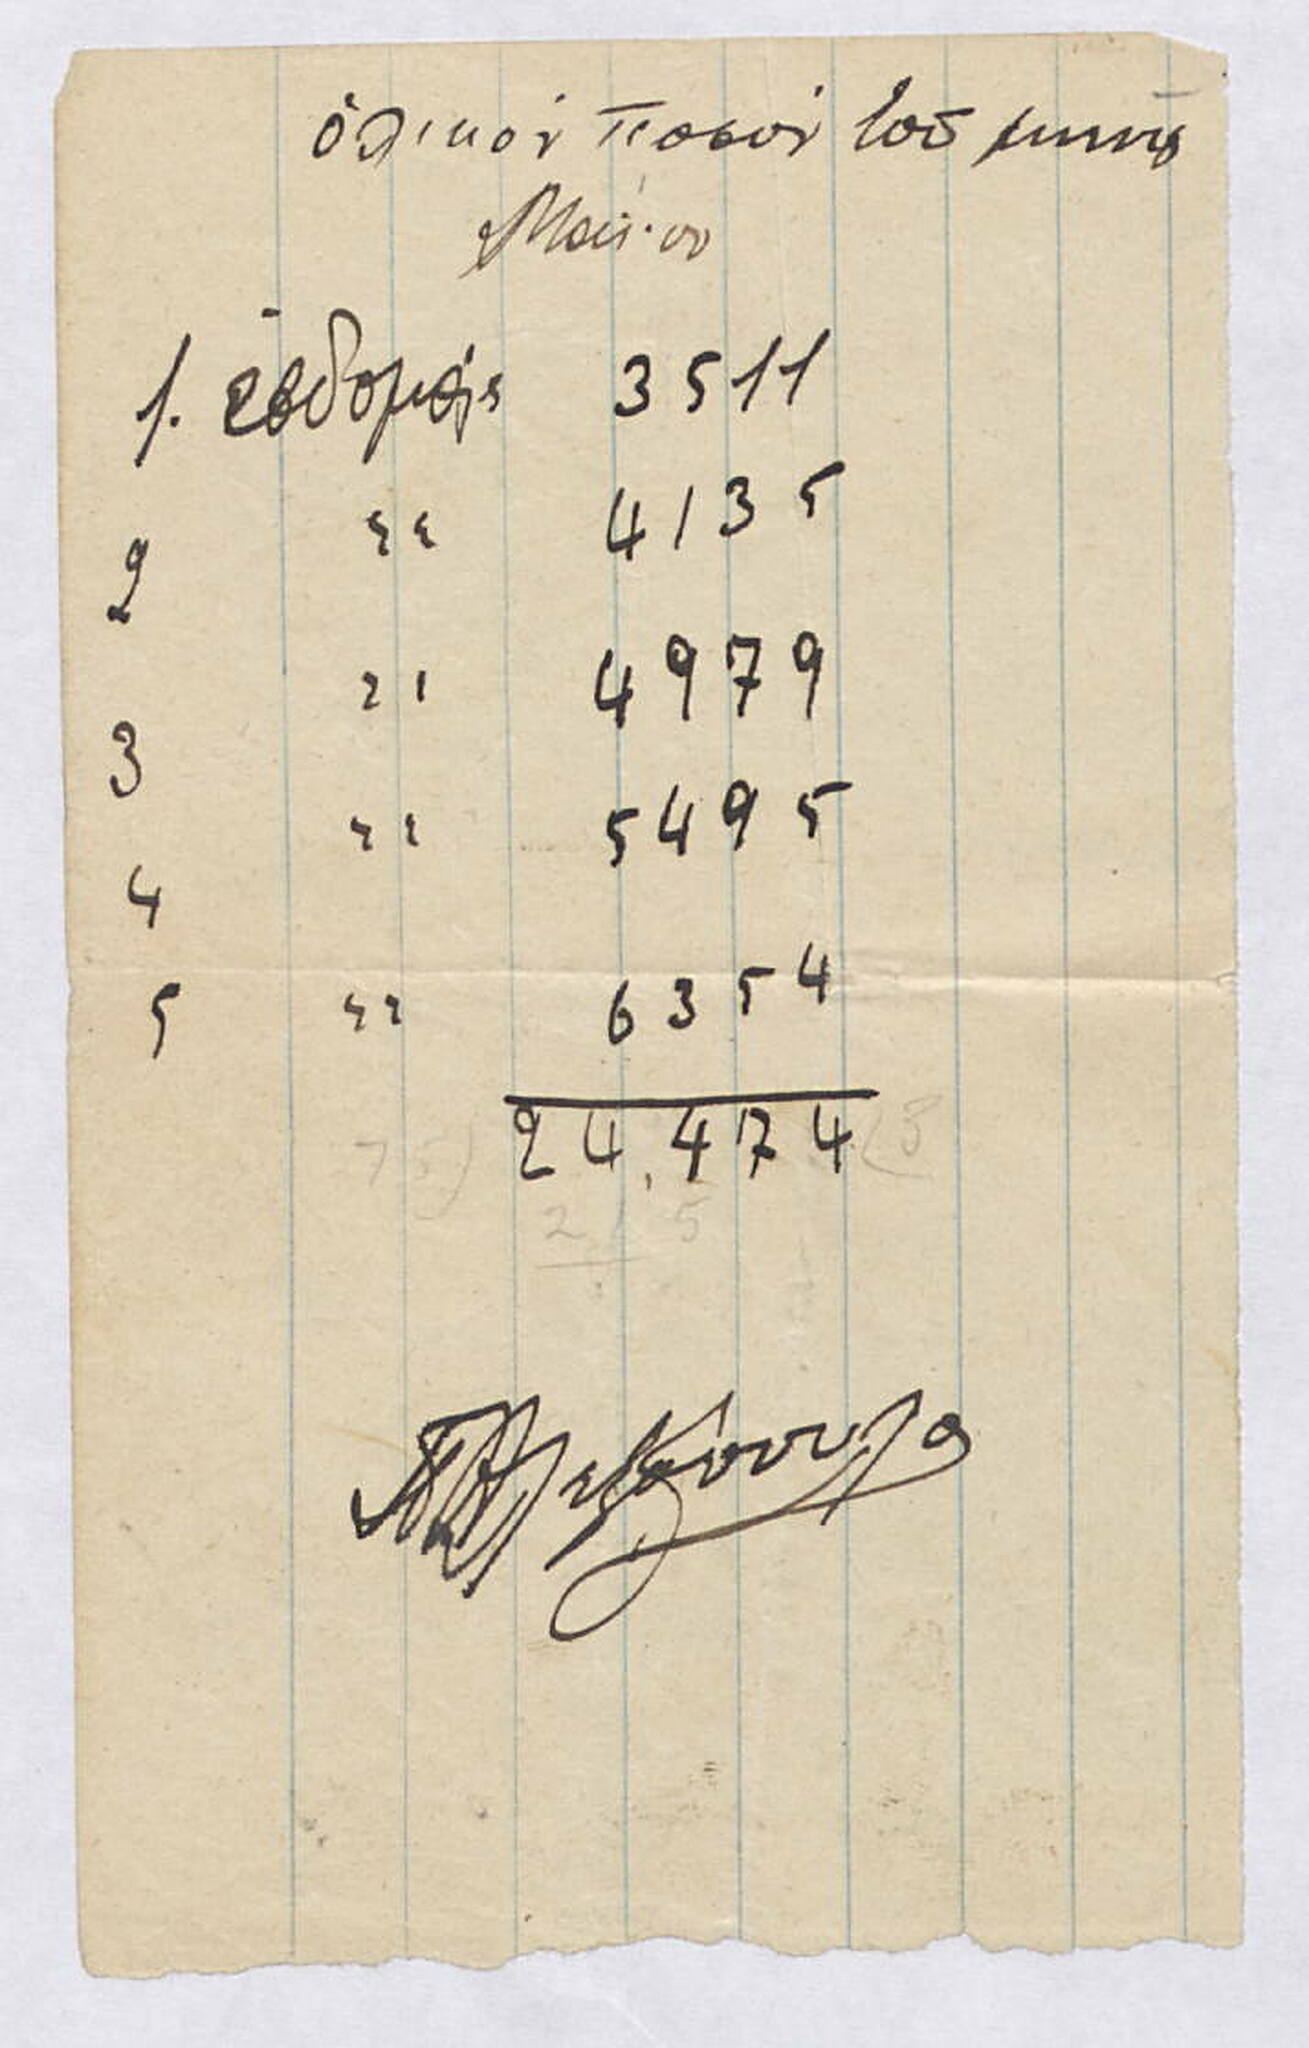 ὁλικόν ποσόν τοῦ μηνός
Μαΐου
1. ἑβδομάς 3511
2 " 4135
3 " 4979
4 " 5495
5 " 6354
24,474
215